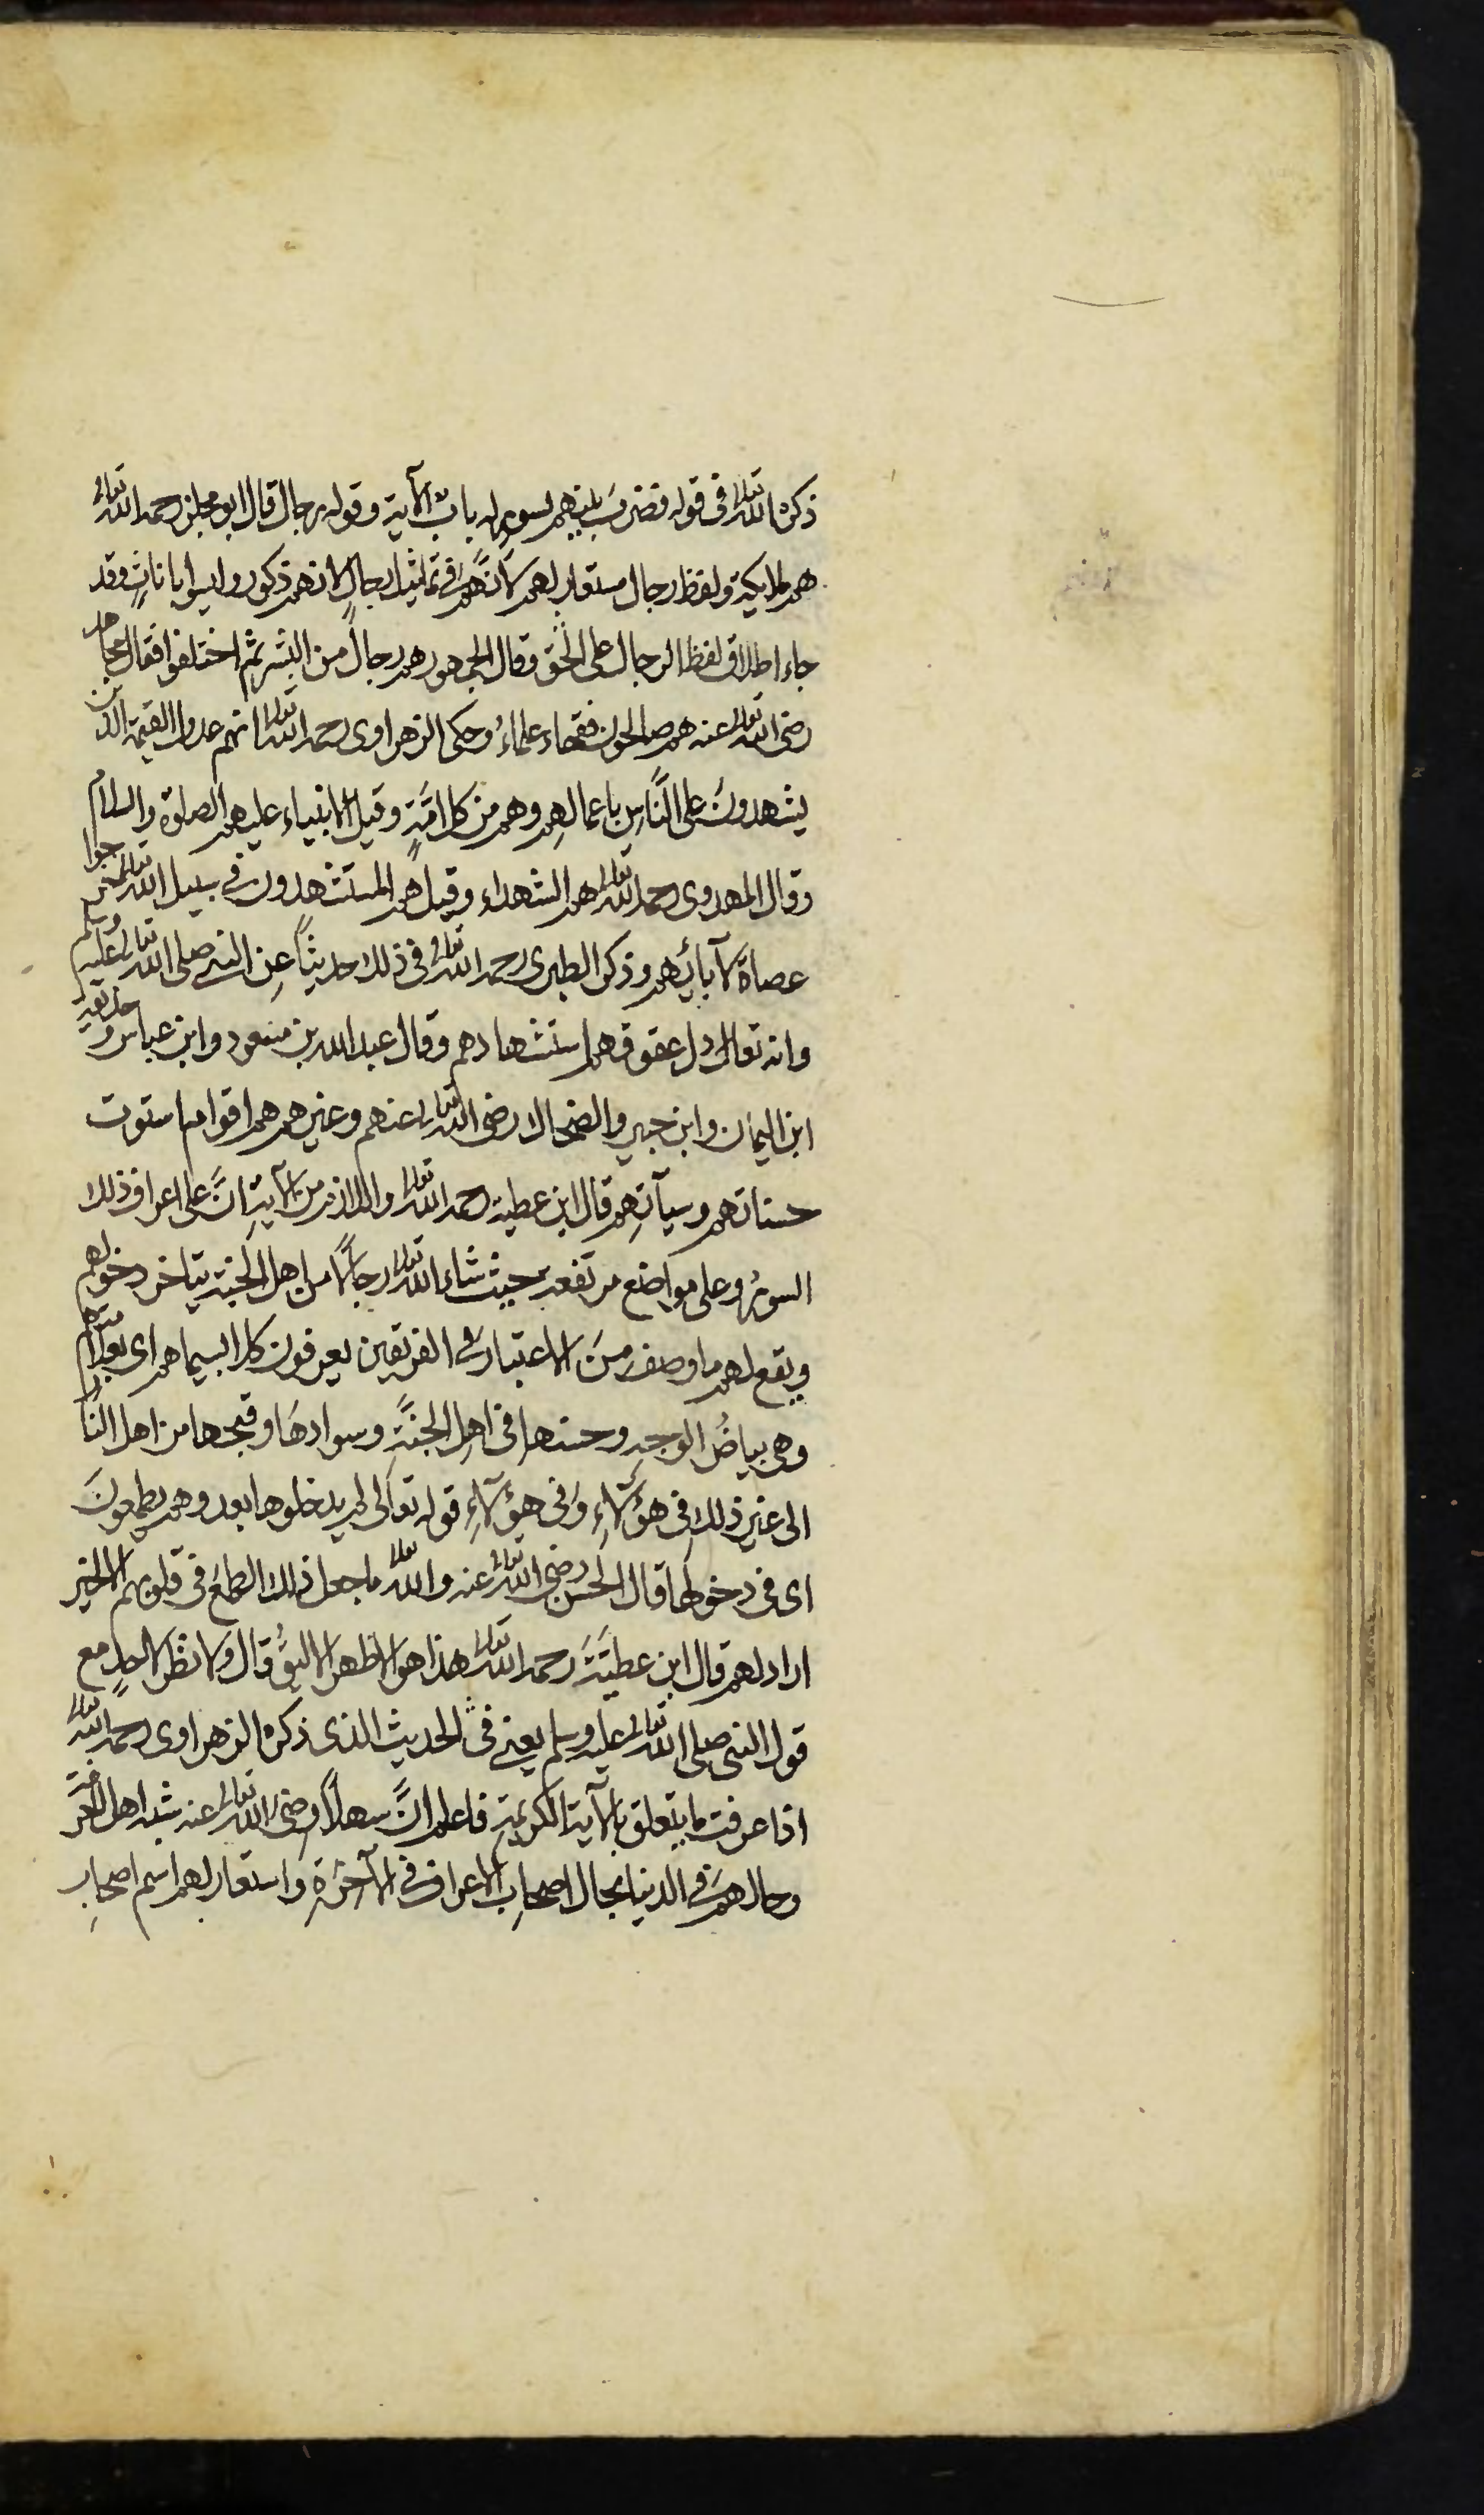 ذكره الله تعالى فى قوله فضرب بينهم بسور له باب الآية وقوله رجال قال ابو مجلز رحمه الله تعالى
هم ملايكة ولفظ رجال مستعار لهم لانهم فى تماثيل رجال لانهم ذكور وليسوا باناث وقد
جاء اطلاق لفظ الرجال على الجن وقال الجمهور هم رجال من البشر ثم اختلفوا فقال مجاهد
رضى الله تعالى عنه هم صالحون فقهاء علماء وحكى الزهراوى رحمه الله تعالى انهم عدول القيمة الذين
يشهدون على الناس باعمالهم وهم من كل امة وقيل الانبياء عليهم الصلوة والسلام
وقال المهدوى رحمه الله تعالى هم الشهداء وقيل هم المستشهدون فى سبيل الله تعالى خرجوا
عصاة لآبائهم وذكر الطبرى رحمه الله تعالى فى ذلك حديثا عن النبى صلى الله تعالى عليه وسلم
وانه تعالى عقوقهم استشهادهم وقال عبد الله بن مسعود وابن عباس وحذيفة
ابن اليمان وابن جبير والضحاك رضى الله تعالى عنهم وغيرهم هم اقوام استوت
حسناتهم وسيآتهم قال ابن عطية رحمه الله تعالى واللازم من الآية ان على اعراف ذلك
السور وعلى مواضع مرتفعة بحيث شاء الله تعالى رجالا من اهل الجنة يتاخر دخولهم
ويقع لهم ما وصف من الاعتبار فى الفريقين يعرفون كلا بسيماهم اى بعلامتهم
وهى بياض الوجه وحسنها فى اهل الجنة وسوادها وقبحها من اهل النار
الى غير ذلك فى هؤلاء وفى هؤلاء قوله تعالى لم يدخلوها بعد وهم يطمعون
اى فى دخولها قال الحسن رضى الله تعالى عنه والله تعالى ما جعل ذلك الطمع فى قلوبهم الا لخير
اراد لهم قال ابن عطية رحمه الله تعالى هذا هو الاظهر الاليق قال ولا نظر لاحد مع
قول النبى صلى الله تعالى عليه وسلم يعنى فى الحديث الذى ذكره الزهراوى رحمه الله تعالى
اذا عرفت ما يتعلق بالآية الكريمة فاعلم ان سهلا رضى الله تعالى عنه شبه اهل المعرفة
وحالهم فى الدنيا بحال اصحاب الاعراف فى الآخرة واستعار لهم اسم اصحاب